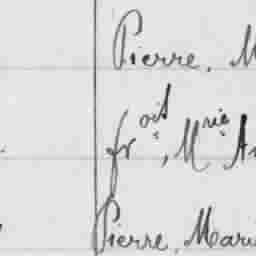 Pierre, M
froit, Mrie An
Pierre, Mari